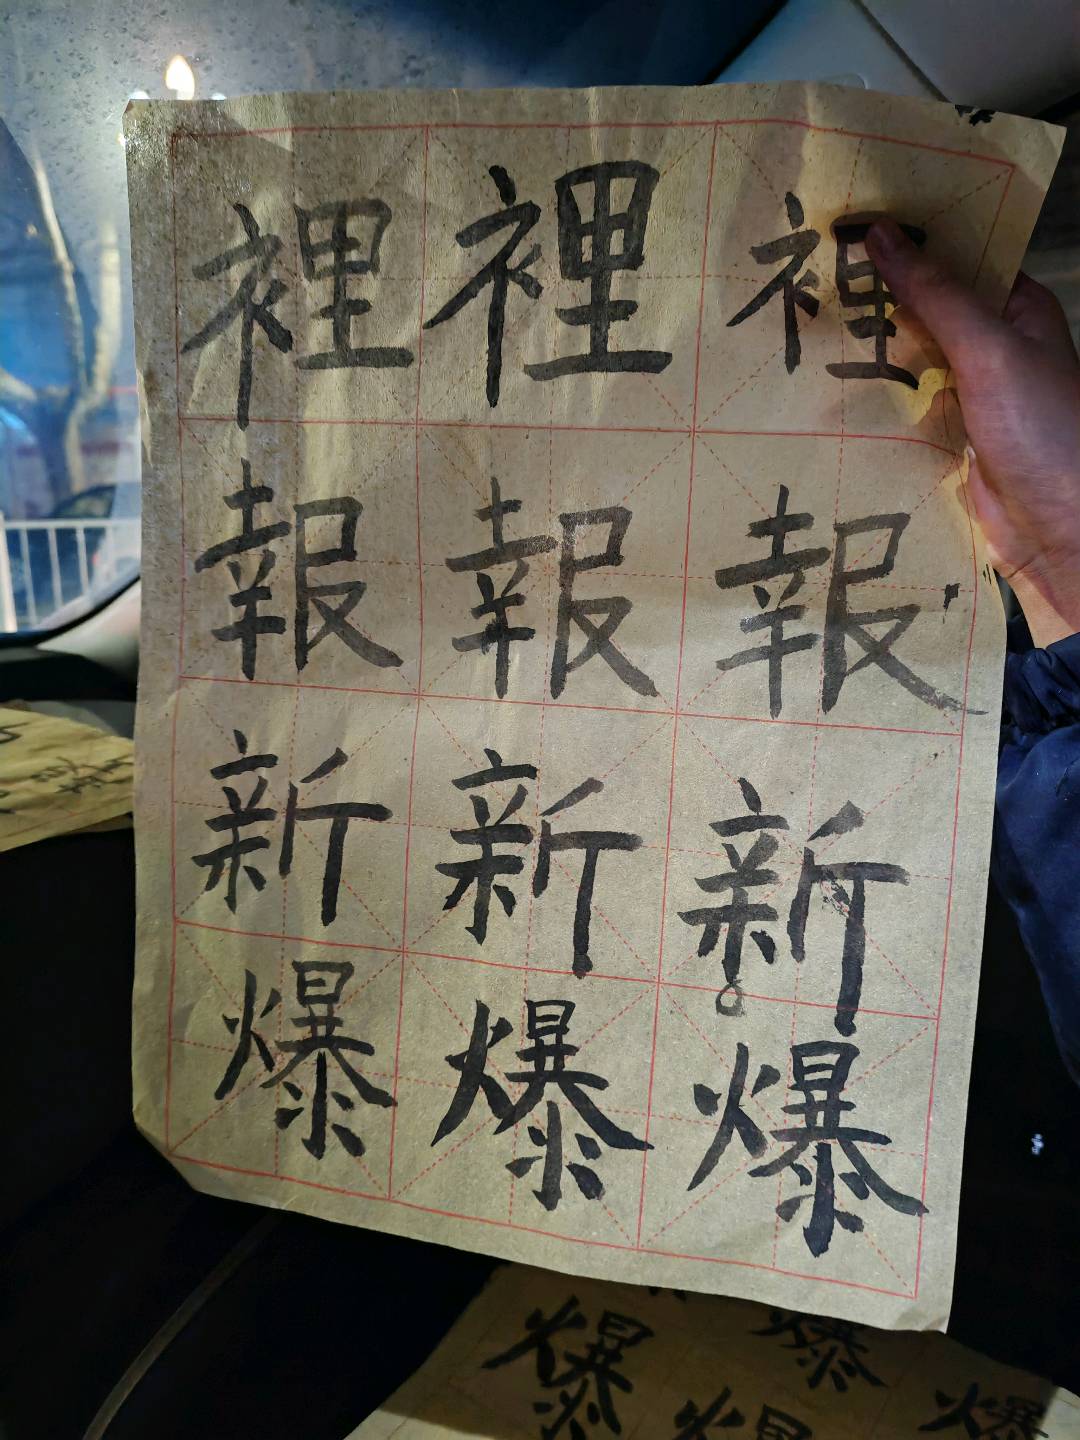 裡裡裡
報報報
新新新
爆爆爆
爆爆
爆爆